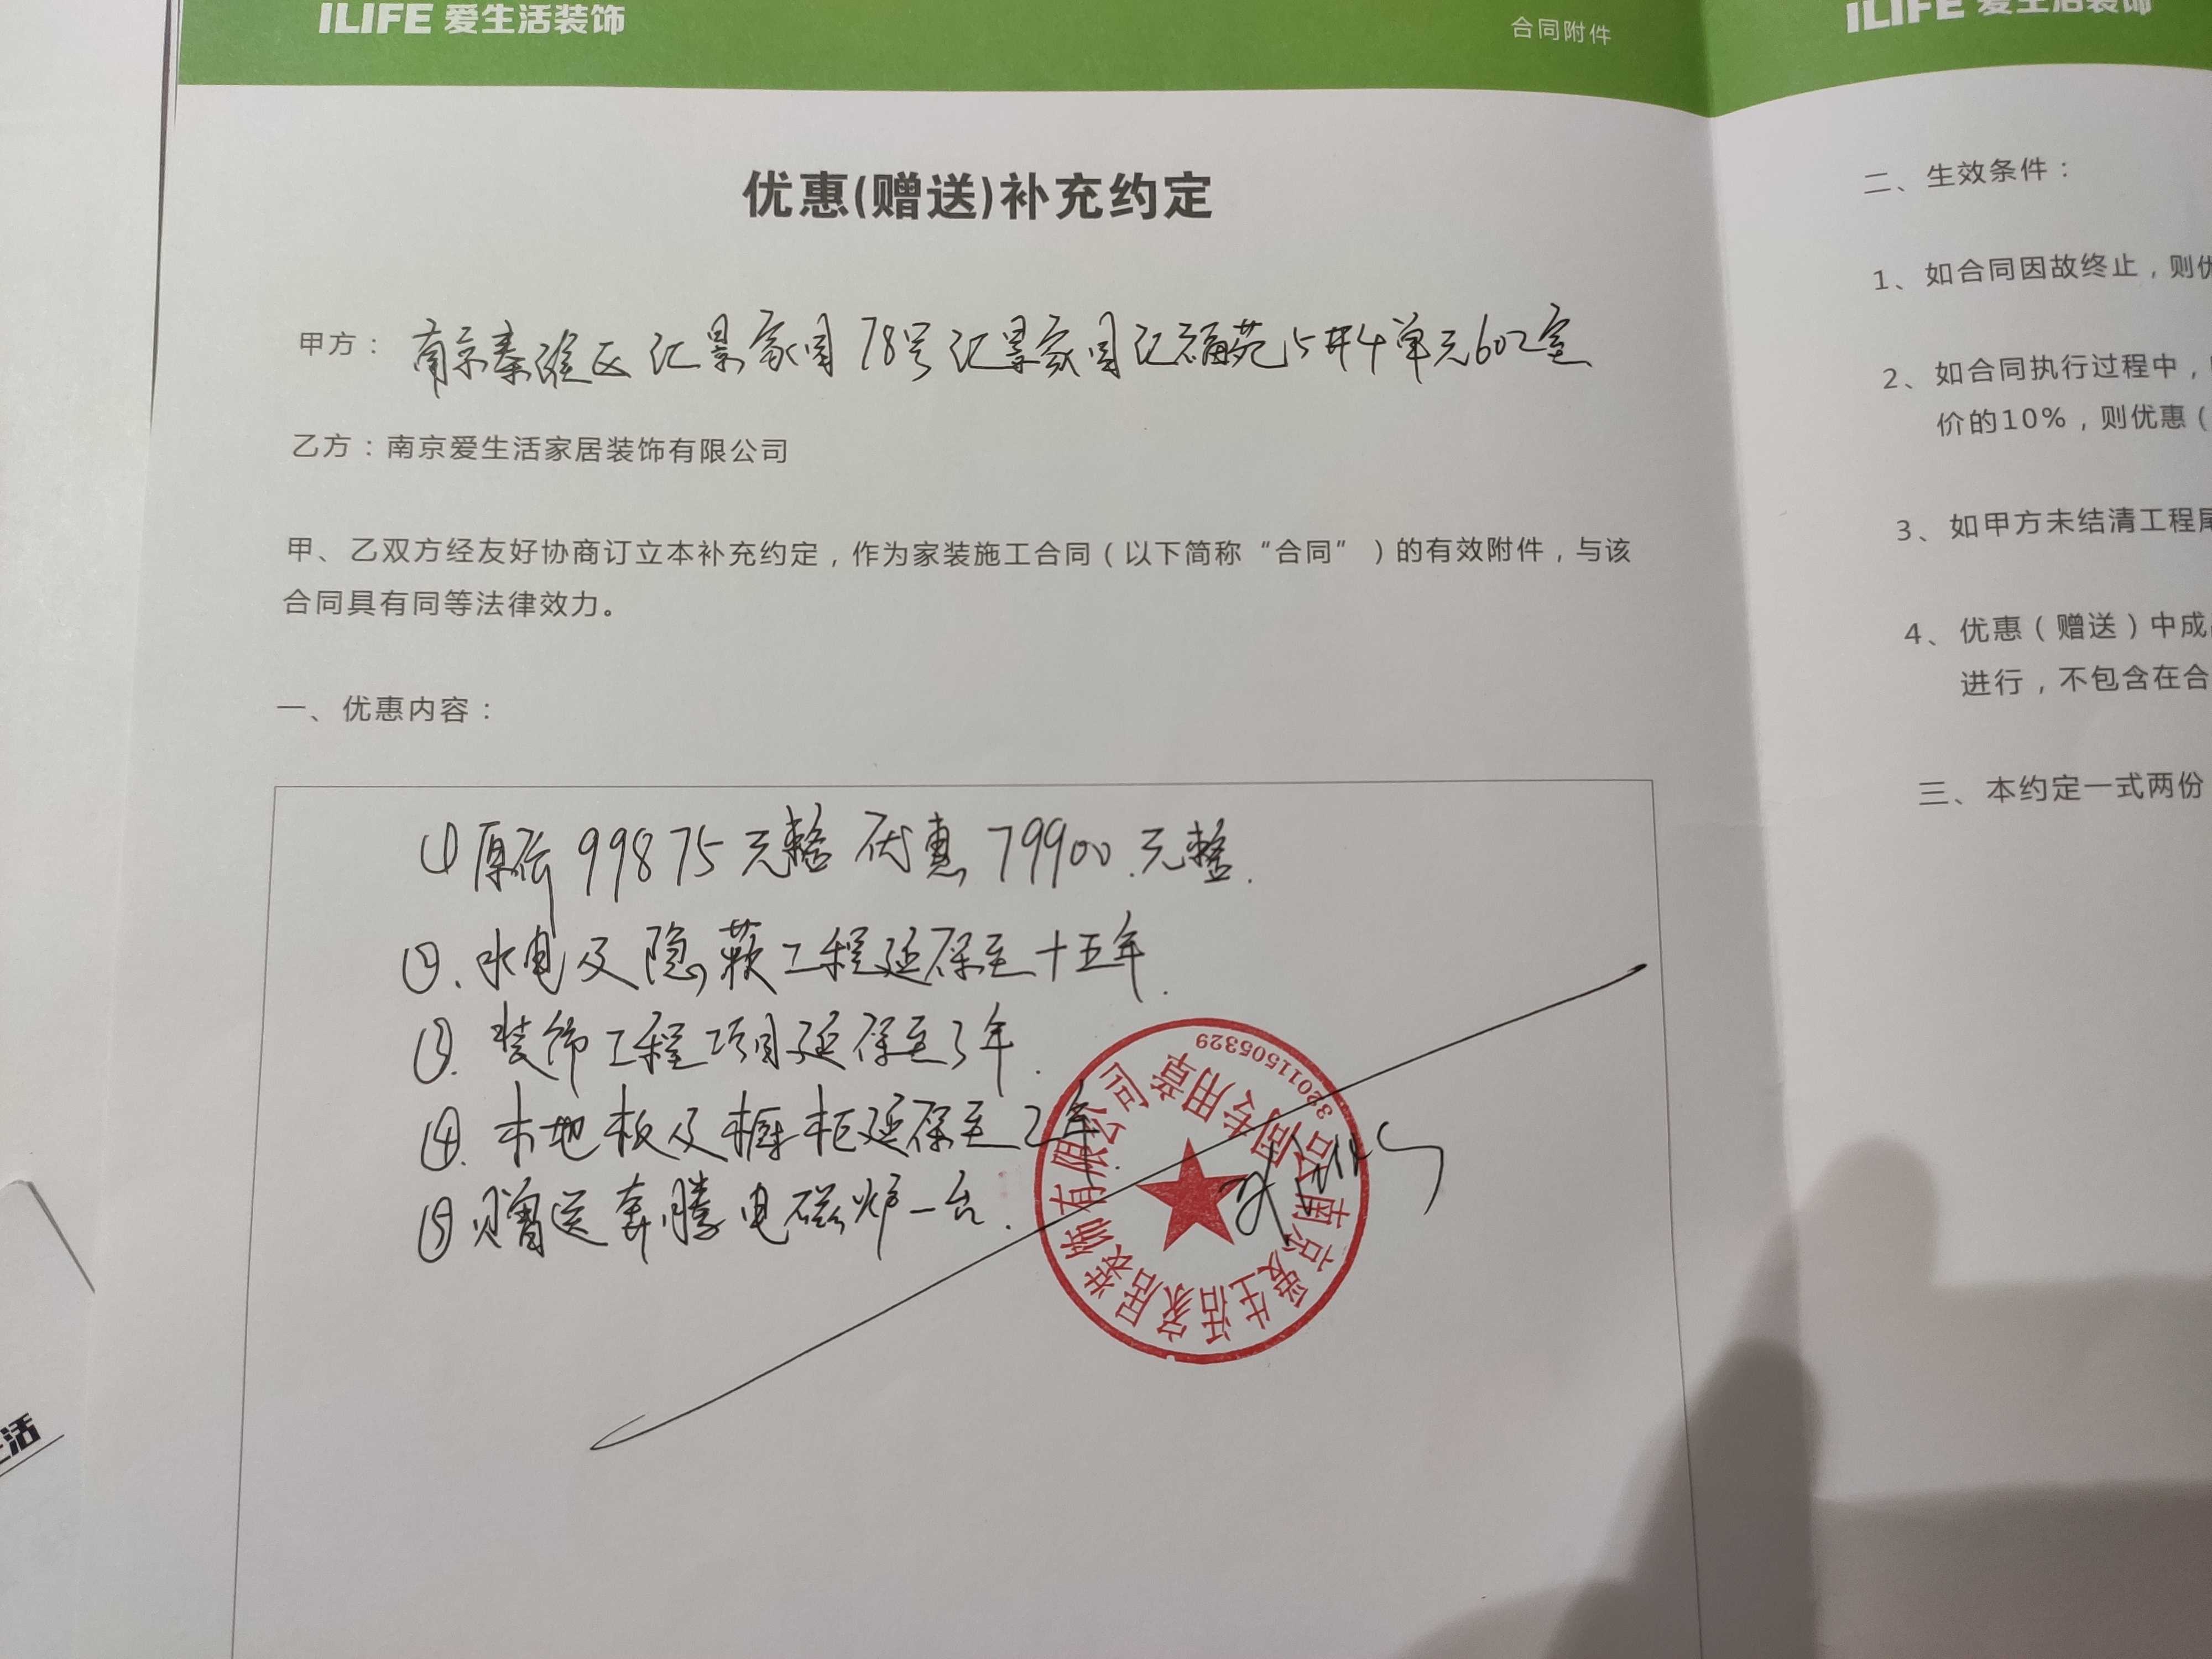 ILIFE 爱生活装饰
合同附件
优惠(赠送)补充约定
甲方：南京秦淮区汇景家园78号汇景家园汇福苑5并4单元602室
乙方：南京爱生活家居装饰有限公司
甲、乙双方经友好协商订立本补充约定，作为家装施工合同（以下简称“合同”）的有效附件，与该
合同具有同等法律效力。
一、优惠内容：
①原价99875元整 优惠79900.元整.
②.水电及隐蔽工程延保至十五年.
③.装饰工程项目延保至3年.
④.木地板及橱柜延保至2年.
⑤赠送奔腾电磁炉一台.
南京爱生活家居装饰有限公司
合同专用章
3201150532​9
ILIFE 爱生活装饰
二、生效条件：
1、如合同因故终止，则优
2、如合同执行过程中，
价的10%，则优惠（
3、如甲方未结清工程尾
4、优惠（赠送）中成
进行，不包含在合
三、本约定一式两份
生活